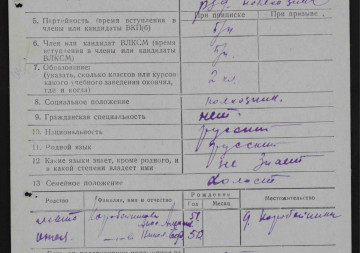 р/д. колхозник
При приписке При призыве
5. Партийность (время вступления в члены или кандидаты ВКП(б) б/п
6. Член или кандидат ВЛКСМ (время вступления в члены или кандидаты ВЛКСМ) б/п.
7. Образование:
(указать, сколько классов или курсов какого учебного заведения окончил, где и когда) 2 кл
8. Социальное положение колхозник.
9. Гражданская специальность нет.
10. Национальность русский
11. Родной язык русский
12. Какие языки знает, кроме родного, и в какой степени владеет ими не знает
13. Семейное положение холост
Родство Фамилия, имя и отчество Рождения Год Месяц Местожительство
мать 51 д. Коробейники
отец 50